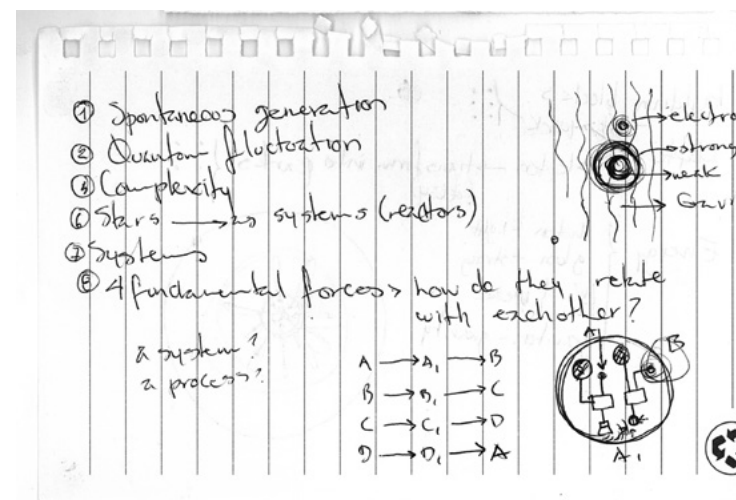 ① Spontaneous generation
② Quantum fluctuation
③ Complexity
⑥ Stars → as systems (reactors)
⑦ Systems
⑧ 4 fundamental forces > how do they relate
with eachother?
a system?
a process?
A → A₁ → B
B → B₁ → C
C → C₁ → D
D → D₁ → A
→ electro
→ strong
→ weak
→ Gavi
A
B
A₁